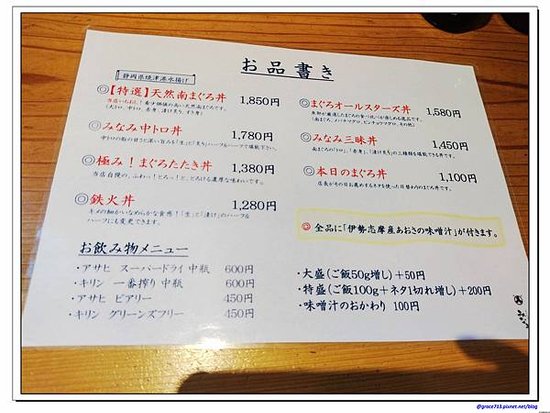 お品書き
静岡県焼津港水揚げ
◎【特選】天然南まぐろ丼 1,850円
◎みなみ中トロ丼 1,780円
◎極み！まぐろたたき丼 1,380円
◎鉄火丼 1,280円
キメの細かいなめらかな食感！「生」と「漬け」のハーフ&
ハーフにも変更できます。
◎まぐろオールスターズ丼 1,580円
◎みなみ三昧丼 1,450円
◎本日のまぐろ丼 1,100円
◎ 全品に「伊勢志摩産あおさの味噌汁」が付きます。
お飲み物メニュー
・アサヒ スーパードライ 中瓶 600円
・キリン 一番搾り 中瓶 600円
・アサヒ ビアリー 450円
・キリン グリーンズフリー 450円
・大盛（ご飯50g増し）＋50円
・特盛（ご飯100g＋ネタ1切れ増し）＋200円
・味噌汁のおかわり 100円
@grace713.pixnet.net/blog